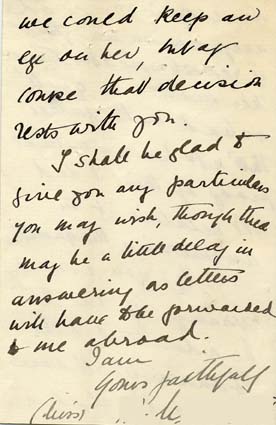 we could keep an
eye on her, but of
course that decision
rests with you.
I shall be glad to
give you any particulars
you may wish, though there
may be a little delay in
answering as letters
will have to be forwarded
to me abroad.
I am
Yours faithfully
(Miss)